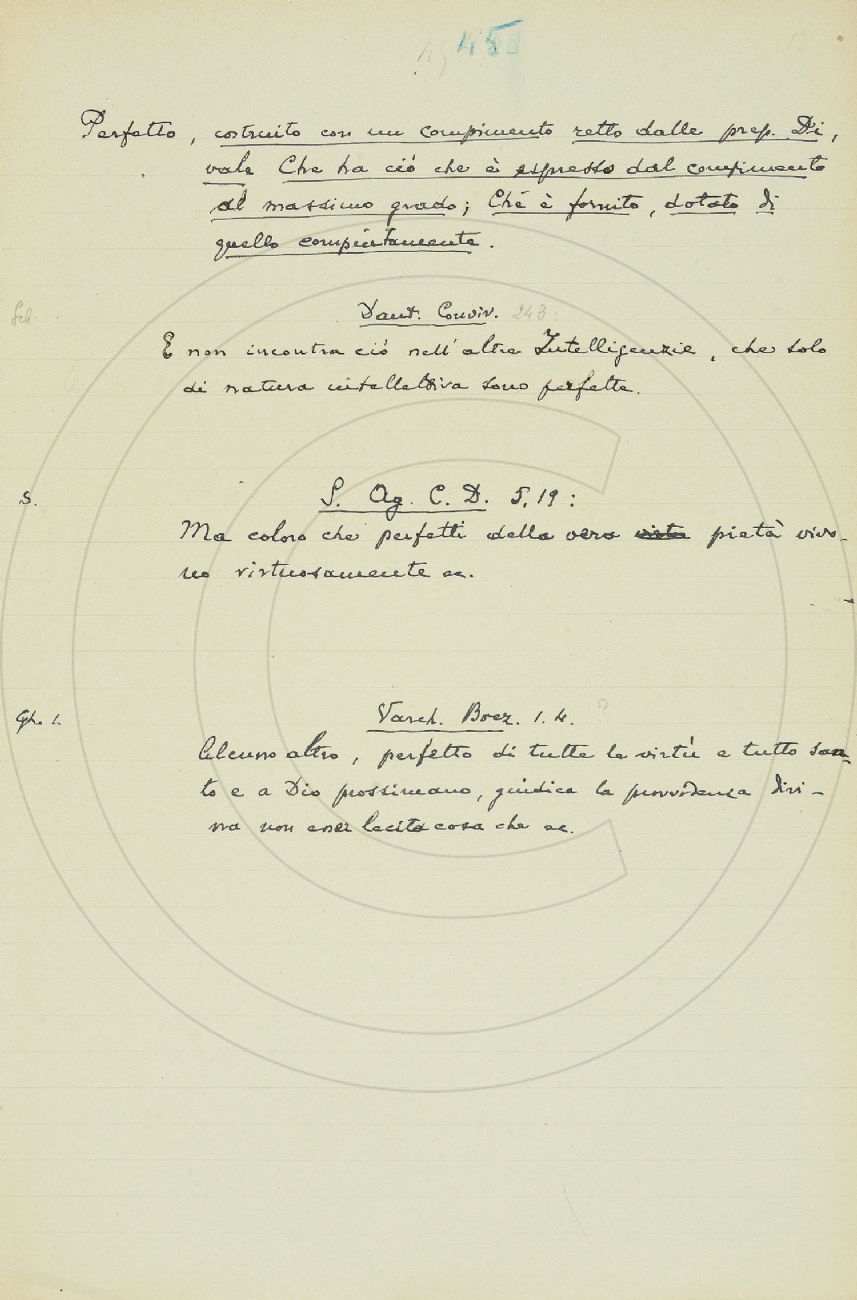 458
Perfetto, costruito con un compimento retto dalla prep. Di,
vale Che ha ciò che è espresso dal compimento
al massimo grado; Che è fornito, dotato di
quello compiutamente.
Dant. Conviv. 243.
E non incontra ciò nell'altre Intelligenzie, che solo
di natura intellettiva sono perfette.
S. S. Ag. C. D. 5, 19:
Ma coloro che perfetti della vera pietà vivo-
no virtuosamente ec.
Gh. 1. Varch. Boez. 1. 4.
Alcuno altro, perfetto di tutte le virtù e tutto san-
to e a Dio prossimano, giudica la provvidenza divi-
na non esser lecita cosa che ec.